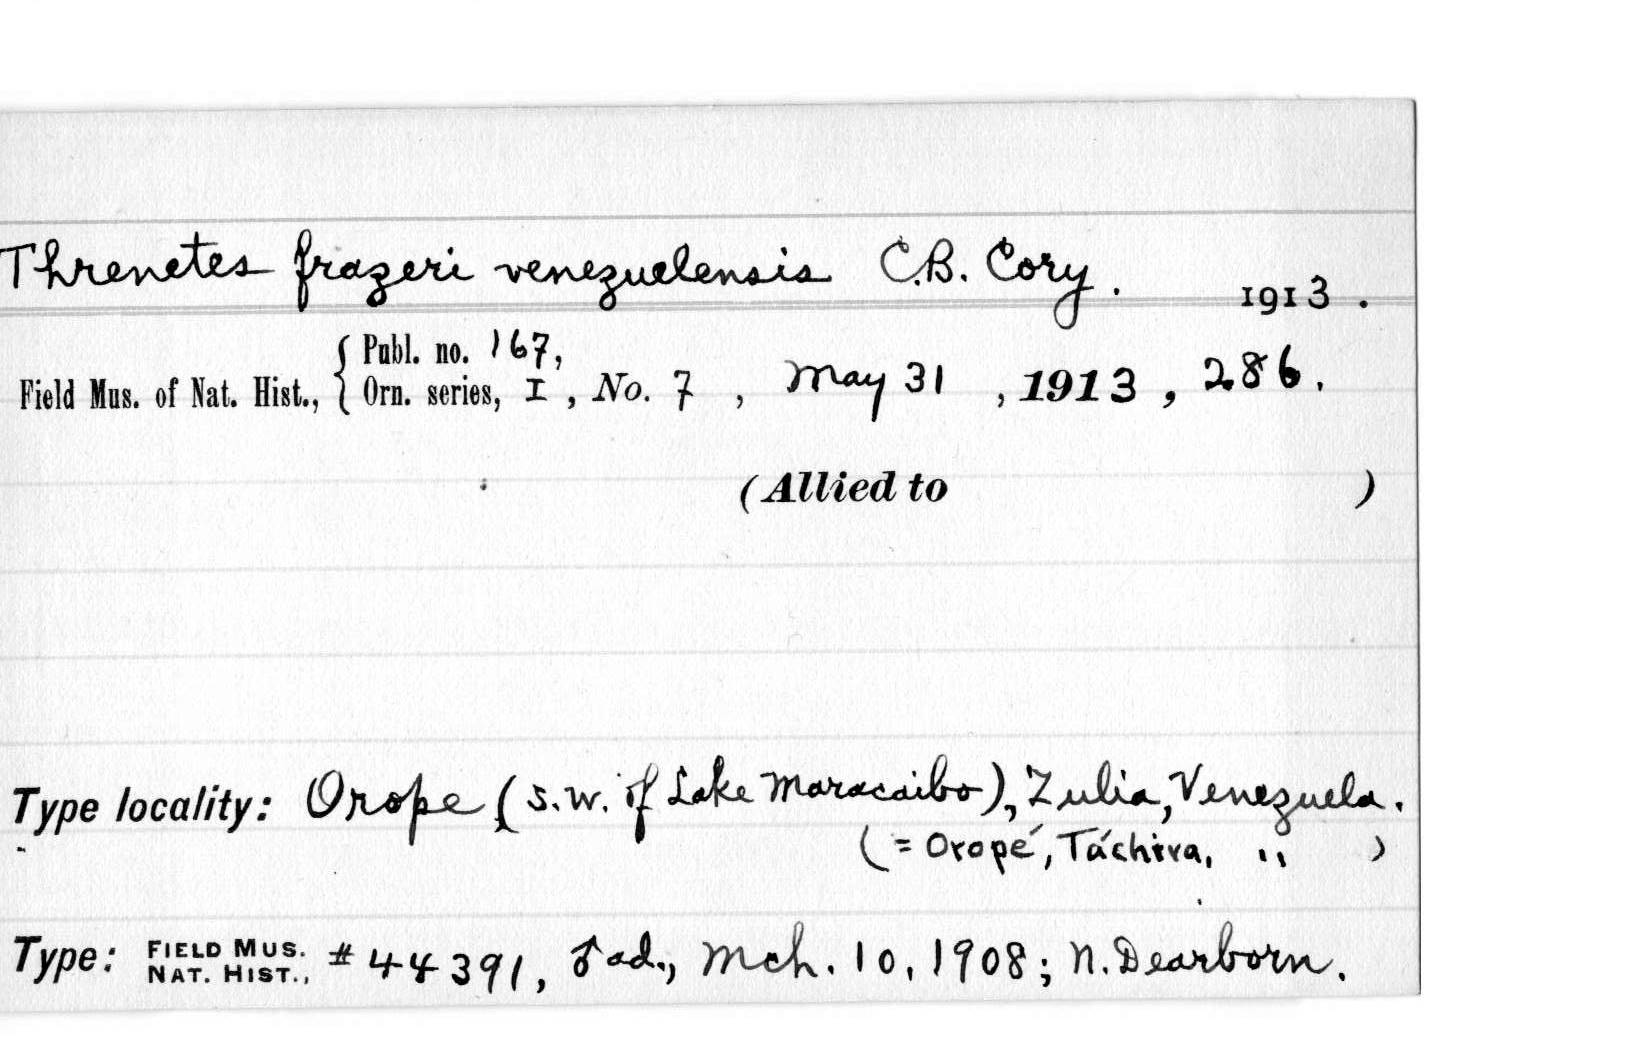 Threnetes frazeri venezuelensis C.B. Cory. 1913.
Field Mus. of Nat. Hist., { Publ. no. 167,
Orn. series, I, No. 7, May 31, 1913, 286.
(Allied to )
Type locality: Orope (S.W. of Lake Maracaibo), Zulia, Venezuela.
(= Oropé, Táchira, " )
Type: FIELD MUS. NAT. HIST., # 44391, ♂ ad., Mch. 10, 1908; N. Dearborn.